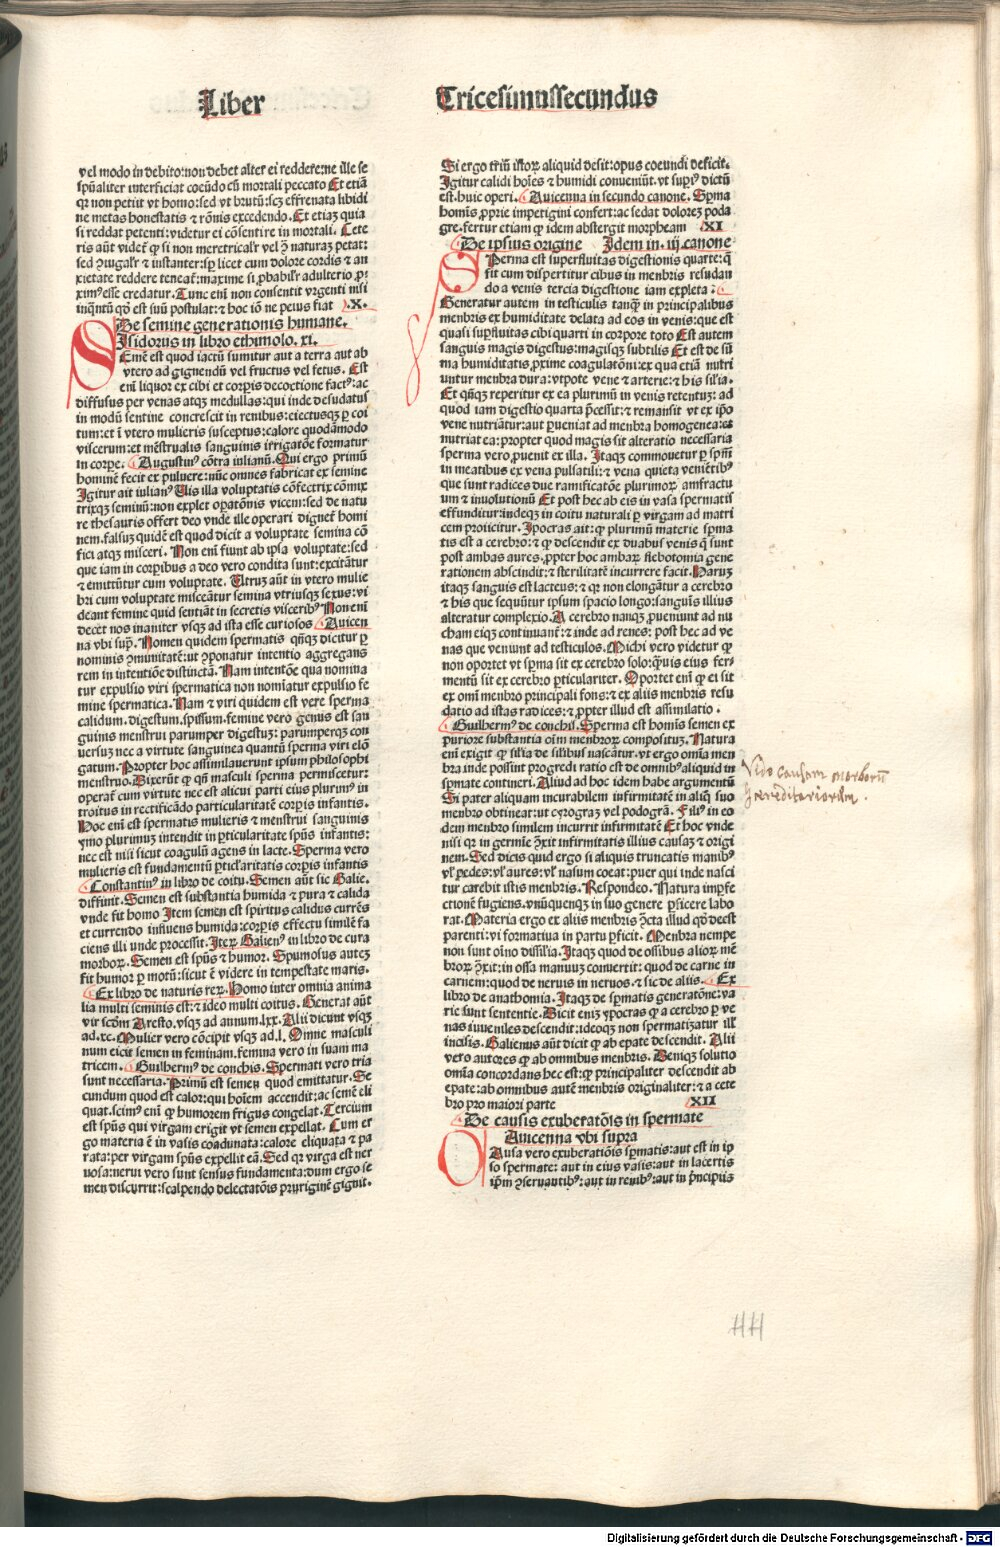 Liber
Tricesimussecundus
vel modo indebito: non debet alter ei reddere: ne ille se
spūaliter interficiat coeūdo cū mortali peccato Et etiā
qr non petit vt homo: sed vt brutū: scz effrenata libidi
ne metas honestatis & rōnis excedendo. Et etiaz quia
si reddat petenti: videtur ei cōsentire in mortali. Cete
sed
xietate reddere teneat: maxime si
esse credatur. Tunc enī non consentit vrgenti nisi
.X.
De semine generationis humane.
Isidorus in libro ethimolo. xi.
Semē est quod iactū sumitur aut a terra aut ab
vtero ad gignendū vel fructus vel fetus. Est
enī liquor ex cibi et corpis decoctione factꝰ: ac
diffusus per venas atqz medullas: qui inde desudatus
in modū sentine concrescit in renibus: eiectusqz p coi
tum: et ī vtero mulieris susceptus: calore quodāmodo
viscerum: et mēstrualis sanguinis irrigatōe formatur
in corpe. Augustinꝰ cōtra iulianū. Qui ergo primū
hominē fecit ex puluere: nūc omnes fabricat ex semine
Igitur ait iulianꝰ Uis illa voluptatis cōfectrix cōmix
trixqz seminū: non explet opatōnis vicem: sed de natu
re thesauris offert deo vnde ille operari dignet homi
nem. falsuz quidē est quod dicit a voluptate semina cō
fici atqz misceri. Non enī fiunt ab ipsa voluptate: sed
que iam in corpibus a deo vero condita sunt: excitātur
& emittūtur cum voluptate. Utruz aūt in vtero mulie
bri cum voluptate misceātur semina vtriusqz sexus: vi
deant femine quid sentiāt in secretis visceribꝰ Non enī
decet nos inaniter vsqz ad ista esse curiosos Auicen
na vbi supꝰ. Nomen quidem spermatis qñqz dicitur p
nominis ꝯmunitatē: ut ꝯponatur intentio aggregans
rem in intentiōe distinctā. Nam intentōe qua nomina
tur expulsio viri spermatica non nomīatur expulsio fe
mine spermatica. Nam & viri quidem est vere sperma
calidum. digestum. spissum. femine vero genus est san
guinis menstrui parumper digestuz: parumperqz con
versuz nec a virtute sanguinea quantū sperma viri elō
gatum. Propter hoc assimilauerunt ipsum philosophi
menstruo. Dixerūt qꝫ qñ masculi sperma permiscetur:
operat cum virtute nec est alicui parti eius plurimꝰ in
troitus in rectificādo particularitatē corpis infantis.
Hoc enī est spermatis mulieris & menstrui sanguinis
ymo plurimuz intendit in pticularitate spūs infantis:
nec est nisi sicut coagulū agens in lacte. Sperma vero
mulieris est fundamentū pticlaritatis corpis infantis
Constantinꝰ in libro de coitu. Semen aūt sic Galie.
diffinit. Semen est substantia humida & pura & calida
vnde fit homo Item semen est spiritus calidus currēs
et currendo influens humida: corpis effectu similē fa
ciens illi vnde processit. Iterz Galienꝰ in libro de cura
morboꝝ. Semen est spūs & humor. Spumosus autez
fit humor p motū: sicut ē videre in tempestate maris.
Ex libro de naturis reꝝ. Homo inter omnia anima
lia multi seminis est: & ideo multi coitus. Generat aūt
vir scdm Aresto. vsqz ad annum. lxx. Alii dicunt vsqz
ad. xc. Mulier vero cōcipit vsqz ad. l. Omne masculi
num eicit semen in feminam. femina vero in suam ma
tricem. Guilhermꝰ de conchis. Spermati vero tria
sunt necessaria. Primū est semen quod emittatur. Se
cundum quod est calor: qui hoiem accendit: ac semē eli
quat. scimꝰ enī qꝫ humorem frigus congelat. Tercium
est spūs qui virgam erigit vt semen expellat. Cum er
go materia ē in vasis coadunata: calore eliquata & pa
rata: per virgam spūs expellit eā. Sed qr virga est ner
uosa: nerui vero sunt sensus fundamenta: dum ergo se
men discurrit: scalpendo delectatōis pruriginē gignit.
Si ergo triū istoꝝ aliquid desit: opus coeundi deficit.
Igitur calidi hoies & humidi conueniūt. vt supꝰ dictū
est. huic operi. Auicenna in secundo canone. Spma
homis pprie impetigini confert: ac sedat dolorez poda
gre. fertur etiam qꝫ idem abstergit morpheam XI
De ipsius origine Idem in. iij. canone
Sperma est superfluitas digestionis quarte: q̄
fit cum dispertitur cibus in menbris resudan
do a venis tercia digestione iam expleta.
Generatur autem in testiculis tanqz in principalibus
menbris ex humiditate delata ad eos in venis: que est
quasi supfluitas cibi quarti in corpore toto Est autem
sanguis magis digestus: magisqz subtilis Et est de sū
ma humiditatis pxime coagulatōni: ex qua etiā nutri
untur menbra dura: vtpote vene & arterie: & his silia.
Et qñqz reperitur ex ea plurimū in venis retentuz: ad
quod iam digestio quarta pcessit: & remansit vt ex ipo
vene nutriātur: aut pueniat ad menbra homogenea: et
nutriat ea: propter quod magis sit alteratio necessaria
sperma vero puenit ex illa. Itaqz commouetur p spm
in meatibus ex vena pulsatili: & vena quieta veniētibꝰ
que sunt radices due ramificatōe plurimoꝝ amfractu
um & inuolutionū Et post hec ab eis in vasa spermatis
effunditur: indeqz in coitu naturali p virgam ad matri
cem proiicitur. Ipocras ait: qꝫ plurimū materie spma
tis est a cerebro: & qꝫ descendit ex duabus venis q̄ sunt
post ambas aures. ppter hoc ambaꝝ flebotomia gene
rationem abscindit: & sterilitatē incurrere facit. Haruz
itaqz sanguis est lacteus: & qr non elongātur a cerebro
& his que sequūtur ipsum spacio longo: sanguis illius
alteratur complexio. A cerebro nanqz pueniunt ad nu
cham eiqz continuant: & inde ad renes: post hec ad ve
nas que veniunt ad testiculos. Michi vero videtur qꝫ
non oportet vt spma sit ex cerebro solo: quis eius fer
mentū sit ex cerebro pticulariter. Oportet enī qꝫ ei sit
ex omi menbro principali fons: & ex aliis menbris resu
datio ad istas radices: & ppter illud est assimilatio.
Guilhermꝰ de conchis. Sperma est homis semen ex
puriore substantia oim menbroꝝ compositus. Natura
enī exigit qꝫ silia de silibus nascātur. vt ergo omia men
bra inde possint progredi ratio est de omnibꝰ aliquid in
spmate contineri. Aliud ad hoc idem habe argumentū
Si pater aliquam incurabilem infirmitatē in aliq suo
menbro obtineat: ut cyrograz vel podogrā. Filiꝰ in eo
dem menbro similem incurrit infirmitatē Et hoc vnde
nisi qr in germīe ꝯxit infirmitatis illius causaz & origi
nem. Sed dicis quid ergo si aliquis truncatis manibꝰ
vl pedes: vl aures: vl nasum coeat: puer qui inde nasci
tur carebit istis menbris. Respondeo. Natura impfe
ctionē fugiens. vnūquenqz in suo genere pficere labo
rat. Materia ergo ex aliis menbris ꝯcta illud qd deest
parenti: vi formatiua in partu pficit. Menbra nempe
non sunt oino dissilia. Itaqz quod de ossibus alioꝝ mē
broꝝ ꝯxit: in ossa manuuz conuertit: quod de carne in
carnem: quod de neruis in neruos: & sic de aliis. Ex
libro de anathomia. Itaqz de spmatis generatōne: va
rie sunt sententie. Dicit eniz ypocras qꝫ a cerebro p ve
nas iuueniles descendit: ideoqz non spermatizatur ill
incisis. Galienus aūt dicit qꝫ ab epate descendit. Alii
vero autores qꝫ ab omnibus menbris. Deniqz solutio
omia concordans hec est: qꝫ principaliter descendit ab
epate: ab omnibus autē menbris originaliter: & a cete
bro pro maiori parte XII
De causis exuberatōis in spermate
Auicenna vbi supra
Causa vero exuberatiōis spmatis: aut est in ip
so spermate: aut in eius vasis: aut in lacertis
ipm ꝯseruantibꝰ: aut in renibꝰ: aut in pncipiis
Vide causam morborū
hereditariorum.
HH
Digitalisierung gefördert durch die Deutsche Forschungsgemeinschaft - DFG